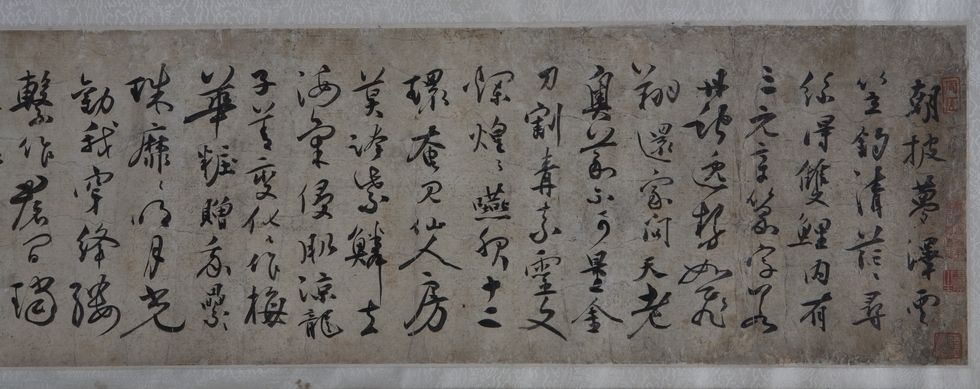 朝披夢澤雲
笠釣清茫〻尋
絲得雙鯉內有
三元章篆字若
丹蛇逸勢如飛
翔還家問天老
奧義不可量金
刀割青素靈文
爛煌〻嚥服十二
環奄見仙人房
莫跨紫鱗去
海氣侵肌涼龍
子善變化〻作梅
華粧贈我纍〻
珠靡〻明月光
勸我穿絳縷
繫作裾間璫